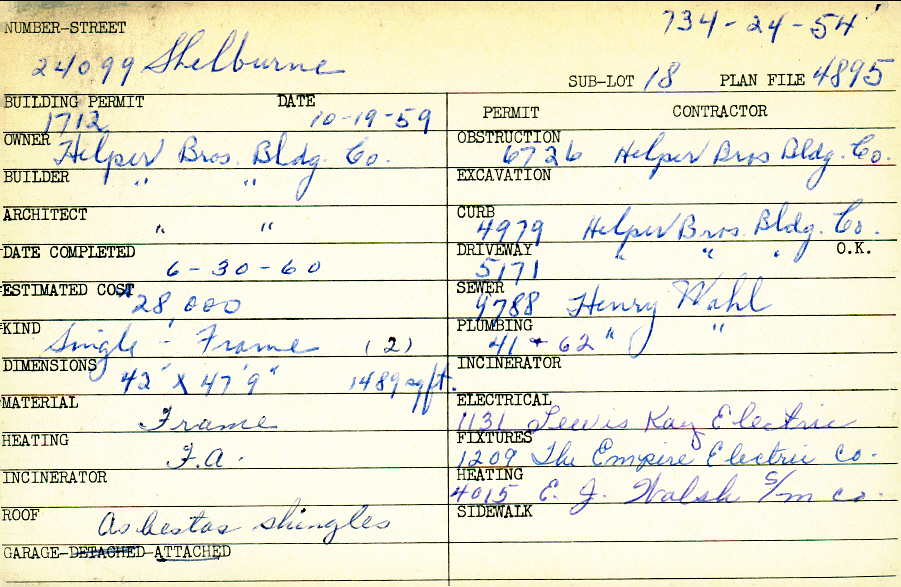 734-24-54
NUMBER-STREET
24099 Shelburne
SUB-LOT 18 PLAN FILE 4895
BUILDING PERMIT DATE
1712 10-19-59
OWNER Helper Bros. Bldg. Co.
BUILDER " "
ARCHITECT " "
DATE COMPLETED
6-30-60
ESTIMATED COST $28,000
KIND
Single - Frame (2)
DIMENSIONS
42' X 47'9" 1489 sq ft.
MATERIAL
Frame
HEATING
F.A.
INCINERATOR
ROOF Asbestos shingles
GARAGE-DETACHED-ATTACHED
PERMIT CONTRACTOR
OBSTRUCTION
6726 Helper Bros Bldg. Co.
EXCAVATION
CURB
4979 Helper Bros. Bldg. Co.
DRIVEWAY " " " O.K.
5171
SEWER
9788 Henry Wahl
PLUMBING
41 + 62 " "
INCINERATOR
ELECTRICAL
1131 Lewis Kay Electric
FIXTURES
1209 The Empire Electric Co.
HEATING
4015 E. J. Walsh S/m co.
SIDEWALK